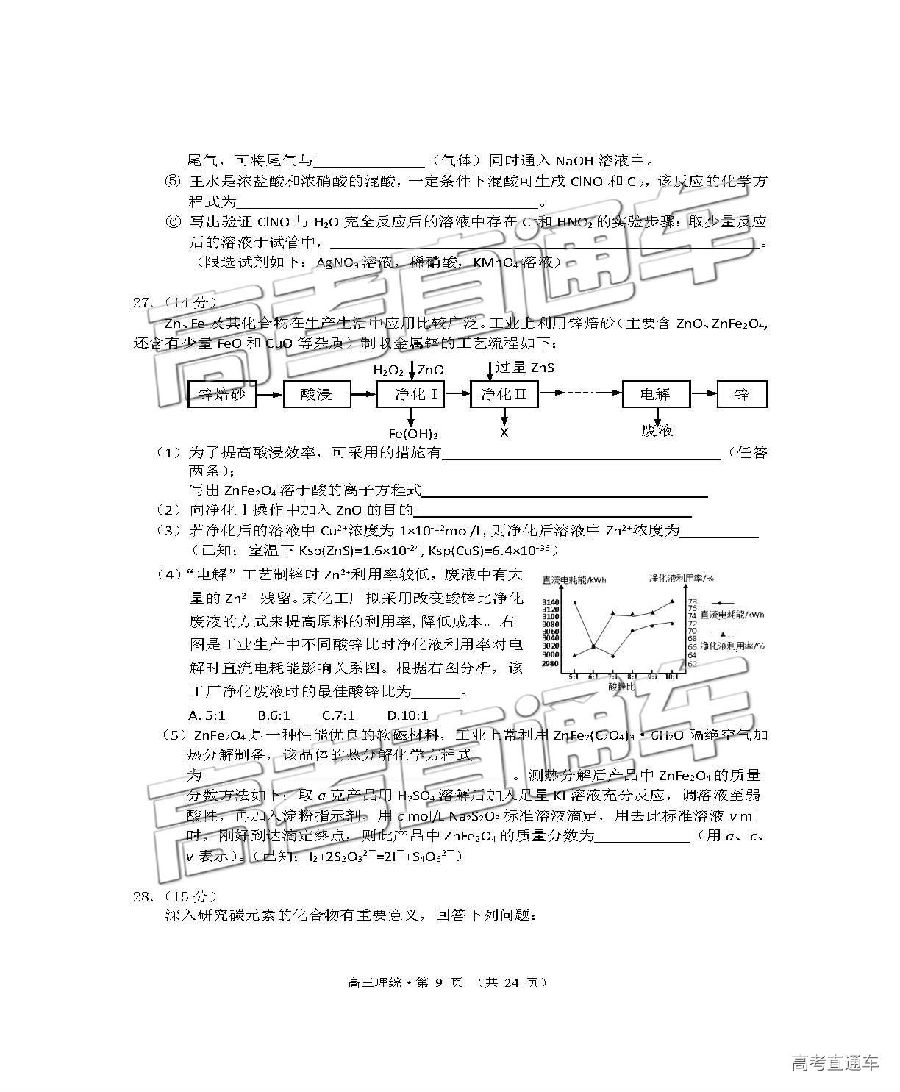 尾气，可将尾气与（气体）同时通入 NaOH 溶液中。
⑤ 王水是浓盐酸和浓硝酸的混酸，一定条件下混酸可生成 ClNO 和 Cl₂，该反应的化学方
程式为。
⑥ 写出验证 ClNO 与 H₂O 完全反应后的溶液中存在 Cl⁻和 HNO₂ 的实验步骤：取少量反应
后的溶液于试管中，。
（限选试剂如下：AgNO₃ 溶液，稀硝酸，KMnO₄ 溶液）
27.（14 分）
Zn、Fe 及其化合物在生产生活中应用比较广泛。工业上利用锌焙砂（主要含 ZnO、ZnFe₂O₄,
还含有少量 FeO 和 CuO 等杂质）制取金属锌的工艺流程如下：
H₂O₂ ZnO 过量 ZnS
锌焙砂 酸浸 净化Ⅰ 净化Ⅱ 电解 锌
Fe(OH)₃ X 废液
（1）为了提高酸浸效率，可采用的措施有（任答
两条）；
写出 ZnFe₂O₄ 溶于酸的离子方程式
（2）向净化Ⅰ操作中加入 ZnO 的目的
（3）若净化后的溶液中 Cu²⁺浓度为 1×10⁻¹²mol/L, 则净化后溶液中 Zn²⁺浓度为
（已知：室温下 Ksp(ZnS)=1.6×10⁻²⁴, Ksp(CuS)=6.4×10⁻³⁶）
（4）“电解”工艺制锌时 Zn²⁺利用率较低，废液中有大
量的 Zn²⁺残留。某化工厂拟采用改变酸锌比净化
废液的方式来提高原料的利用率，降低成本。右
图是工业生产中不同酸锌比时净化液利用率对电
解时直流电耗能影响关系图。根据右图分析，该
工厂净化废液时的最佳酸锌比为。
直流电耗能/kWh 净化液利用率/%
3140
3120
3100
3080
3060
3040
3020
3000
2980
78
76
74
72
70
68
66
64
62
直流电耗能/kWh
净化液利用率/%
5:1 6:1 7:1 8:1 9:1 10:1
酸锌比
A. 5:1 B.6:1 C.7:1 D.10:1
（5）ZnFe₂O₄ 是一种性能优良的软磁材料，工业上常利用 ZnFe₂(C₂O₄)₃·6H₂O 隔绝空气加
热分解制备，该晶体的热分解化学方程式
为。测热分解后产品中 ZnFe₂O₄ 的质量
分数方法如下：取 a 克产品用 H₂SO₄ 溶解后加入足量 KI 溶液充分反应，调溶液至弱
酸性，再加入淀粉指示剂，用 c mol/L Na₂S₂O₃ 标准溶液滴定，用去此标准溶液 v ml
时，刚好到达滴定终点，则此产品中 ZnFe₂O₄ 的质量分数为（用 a、c、
v 表示）。（已知：I₂+2S₂O₃²⁻=2I⁻+S₄O₆²⁻）
28.（15 分）
深入研究碳元素的化合物有重要意义，回答下列问题：
高三理综·第 9 页 （共 24 页）
高考直通车
高考直通车
高考直通车
高考直通车